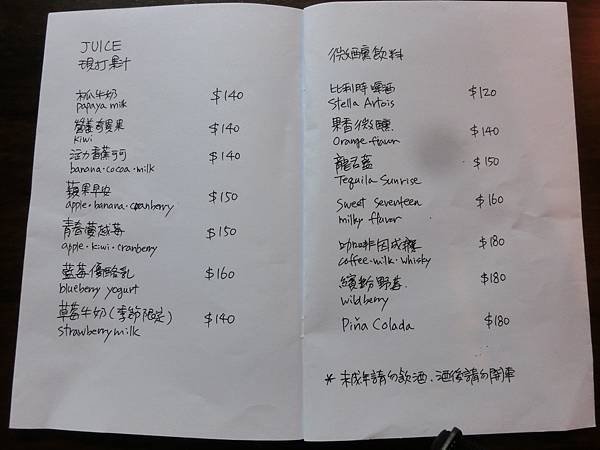 JUICE
現打果汁
木瓜牛奶 $140
papaya milk
營養奇異果 $140
kiwi
活力香蕉可可 $140
banana·cocoa·milk
蘋果早安 $150
apple·banana·cranberry
青春蔓越莓 $150
apple·kiwi·cranberry
藍莓優酪乳 $160
blueberry yogurt
草莓牛奶(季節限定) $140
strawberry milk
微醺飲料
比利時啤酒 $120
Stella Artois
果香微醺 $140
Orange flavor
龍舌蘭 $150
Tequila Sunrise
Sweet Seventeen $160
milky flavor
咖啡因成癮 $180
coffee·milk·whisky
繽紛野莓 $180
wildberry
Piña Colada $180
* 未成年請勿飲酒、酒後請勿開車